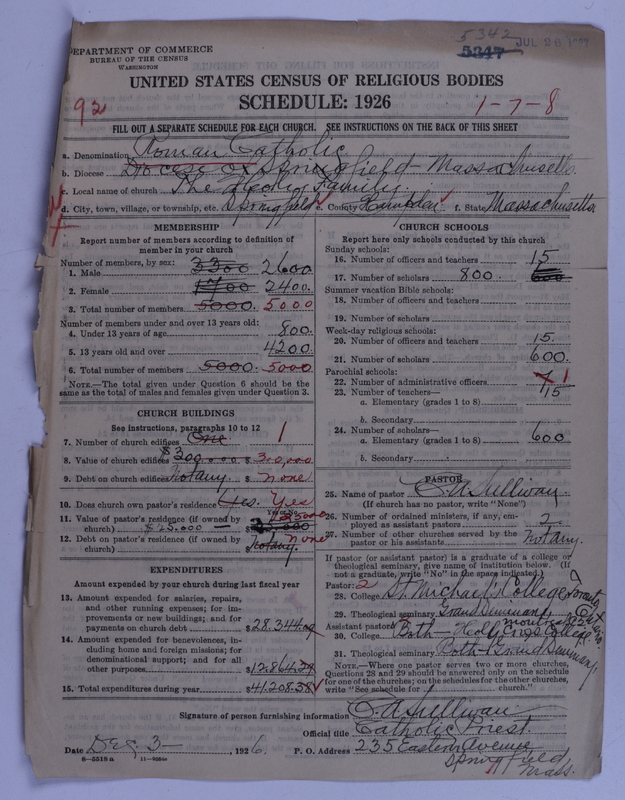 5342
5347
JUL 26 1927
DEPARTMENT OF COMMERCE
BUREAU OF THE CENSUS
WASHINGTON
UNITED STATES CENSUS OF RELIGIOUS BODIES
SCHEDULE: 1926
92
1-7-8
FILL OUT A SEPARATE SCHEDULE FOR EACH CHURCH. SEE INSTRUCTIONS ON THE BACK OF THIS SHEET
a. Denomination Roman Catholic
b. Diocese Diocese of Springfield - Massachusetts
c. Local name of church The Holy Family.
d. City, town, village, or township, etc. Springfield e. County Hampden f. State Massachusetts
MEMBERSHIP
Report number of members according to definition of
member in your church
Number of members, by sex:
1. Male 3300 2600
2. Female 1700 2400.
3. Total number of members 5000 5000
Number of members under and over 13 years old:
4. Under 13 years of age 800.
5. 13 years old and over 4200.
6. Total number of members 5000. 5000
NOTE.—The total given under Question 6 should be the
same as the total of males and females given under Question 3.
CHURCH BUILDINGS
See instructions, paragraphs 10 to 12
7. Number of church edifices One 1
8. Value of church edifices $300,000 $300,000
9. Debt on church edifices Not any. $ none
10. Does church own pastor's residence Yes. Yes
Yes or No
11. Value of pastor's residence (if owned by
church) $25.000 — $ 25000
12. Debt on pastor's residence (if owned by
church) Not any. none
EXPENDITURES
Amount expended by your church during last fiscal year
13. Amount expended for salaries, repairs,
and other running expenses; for im-
provements or new buildings; and for
payments on church debt $28.344.09
14. Amount expended for benevolences, in-
cluding home and foreign missions; for
denominational support; and for all
other purposes $12.864.29
15. Total expenditures during year $41,208.38
CHURCH SCHOOLS
Report here only schools conducted by this church
Sunday schools:
16. Number of officers and teachers 15
17. Number of scholars 800. 600
Summer vacation Bible schools:
18. Number of officers and teachers
19. Number of scholars
Week-day religious schools:
20. Number of officers and teachers 15.
21. Number of scholars 600.
Parochial schools:
22. Number of administrative officers 1
23. Number of teachers—
a. Elementary (grades 1 to 8) 15
b. Secondary
24. Number of scholars—
a. Elementary (grades 1 to 8) 600
b. Secondary
PASTOR
25. Name of pastor C A Sullivan.
(If church has no pastor, write "None")
26. Number of ordained ministers, if any, em-
ployed as assistant pastors 2
27. Number of other churches served by the
pastor or his assistants Not any.
If pastor (or assistant pastor) is a graduate of a college or
theological seminary, give name of institution below. (If
not a graduate, write "No" in the space indicated.)
Pastor: 2
28. College St Michael's College Toronto Ont
29. Theological seminary Grand Seminary Montreal
Assistant pastor: 2
30. College Both - Holy Cross College
31. Theological seminary Both - Grand Seminary
NOTE.—Where one pastor serves two or more churches,
Questions 28 and 29 should be answered only on the schedule
for one of the churches; on the schedules for the other churches,
write "See schedule for church."
Signature of person furnishing information C A Sullivan
Official title Catholic Priest.
Date Dec. 3 — , 1926. P. O. Address 235 Eastern Avenue
Springfield
Mass.
8-5518a 11-9064